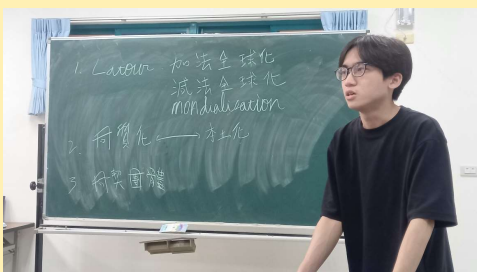 1. Latour 加法全球化
減法全球化
mondialisation
2. 荷質化 ⟷ 本土化
3. 荷契團體